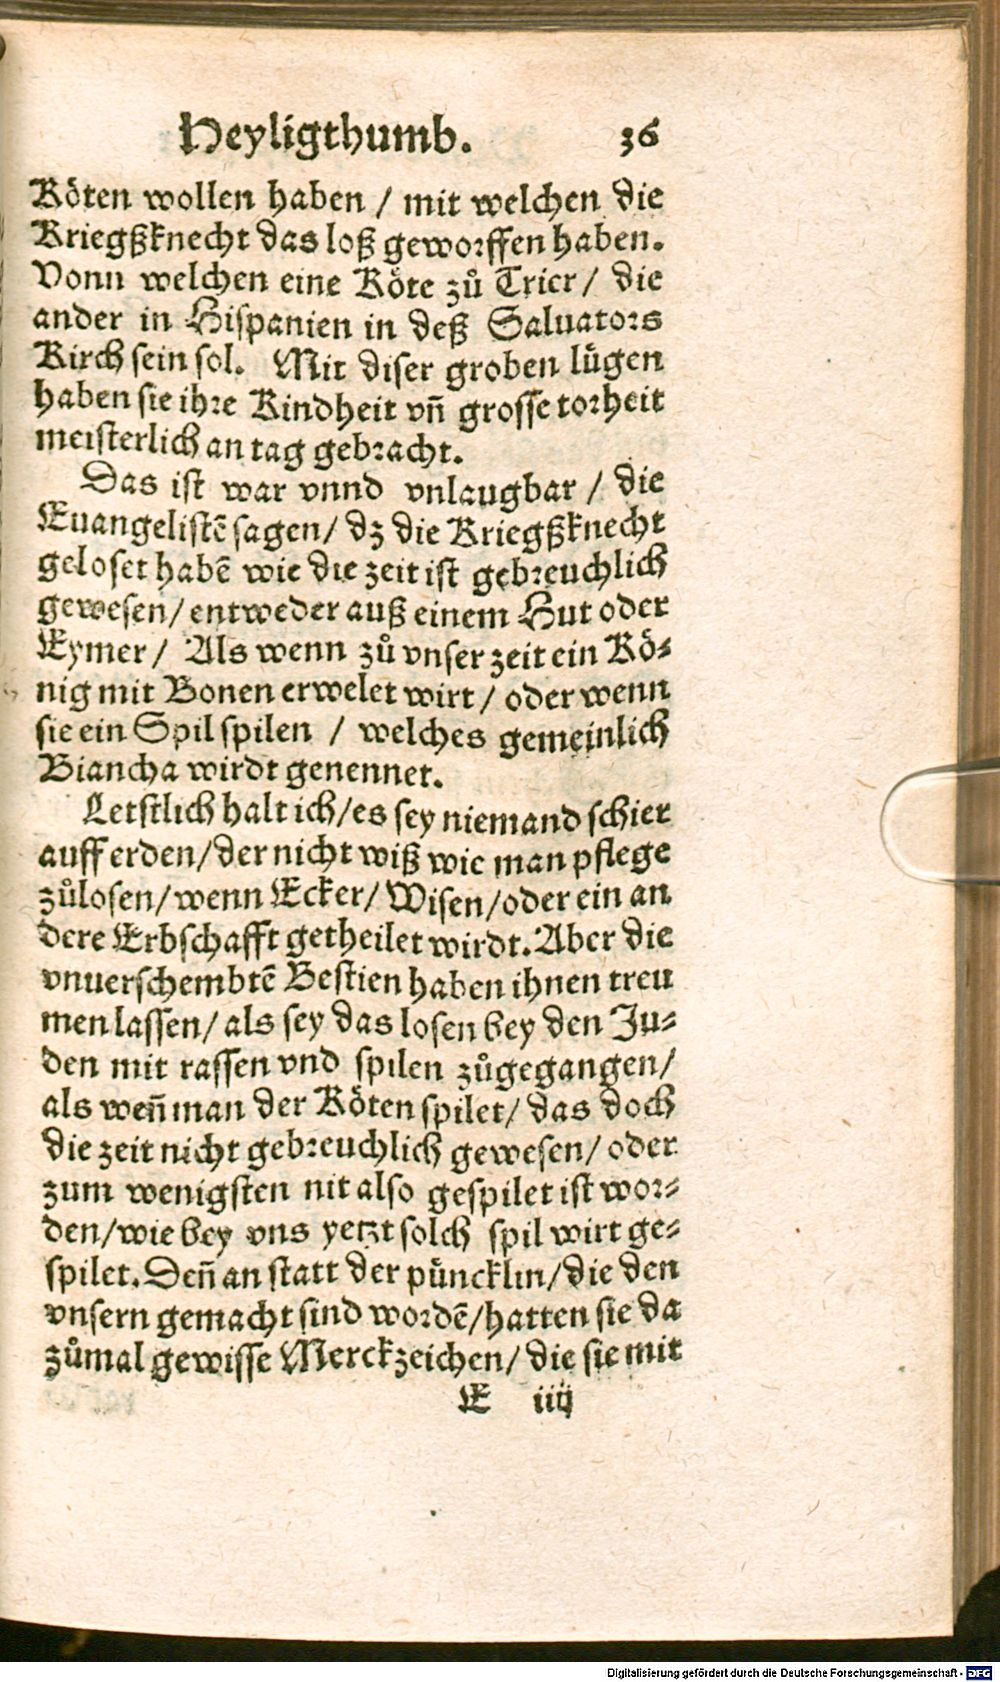 Heyligthumb. 36
Röten wollen haben / mit welchen die
Kriegßknecht das loß geworffen haben.
Vonn welchen eine Röte zů Trier / die
ander in Hispanien in deß Saluators
Kirch sein sol. Mit diser groben lügen
haben sie ihre Kindheit vñ grosse torheit
meisterlich an tag gebracht.
Das ist war vnnd vnlaugbar / die
Euangelistē sagen / dz die Kriegßknecht
geloset habē wie die zeit ist gebreuchlich
gewesen / entweder auß einem Hut oder
Eymer / Als wenn zů vnser zeit ein Kö-
nig mit Bonen erwelet wirt / oder wenn
sie ein Spil spilen / welches gemeinlich
Biancha wirdt genennet.
Letstlich halt ich / es sey niemand schier
auff erden / der nicht wiß wie man pflege
zůlosen / wenn Ecker / Wisen / oder ein an
dere Erbschafft getheilet wirdt. Aber die
vnuerschembtē Bestien haben ihnen treu
men lassen / als sey das losen bey den Ju-
den mit rassen vnd spilen zůgegangen /
als weñ man der Röten spilet / das doch
die zeit nicht gebreuchlich gewesen / oder
zum wenigsten nit also gespilet ist wor-
den / wie bey vns yetzt solch spil wirt ge-
spilet. Deñ an statt der püncklin / die den
vnsern gemacht sind wordē / hatten sie da
zůmal gewisse Merckzeichen / die sie mit
E iiij
Digitalisierung gefördert durch die Deutsche Forschungsgemeinschaft - DFG